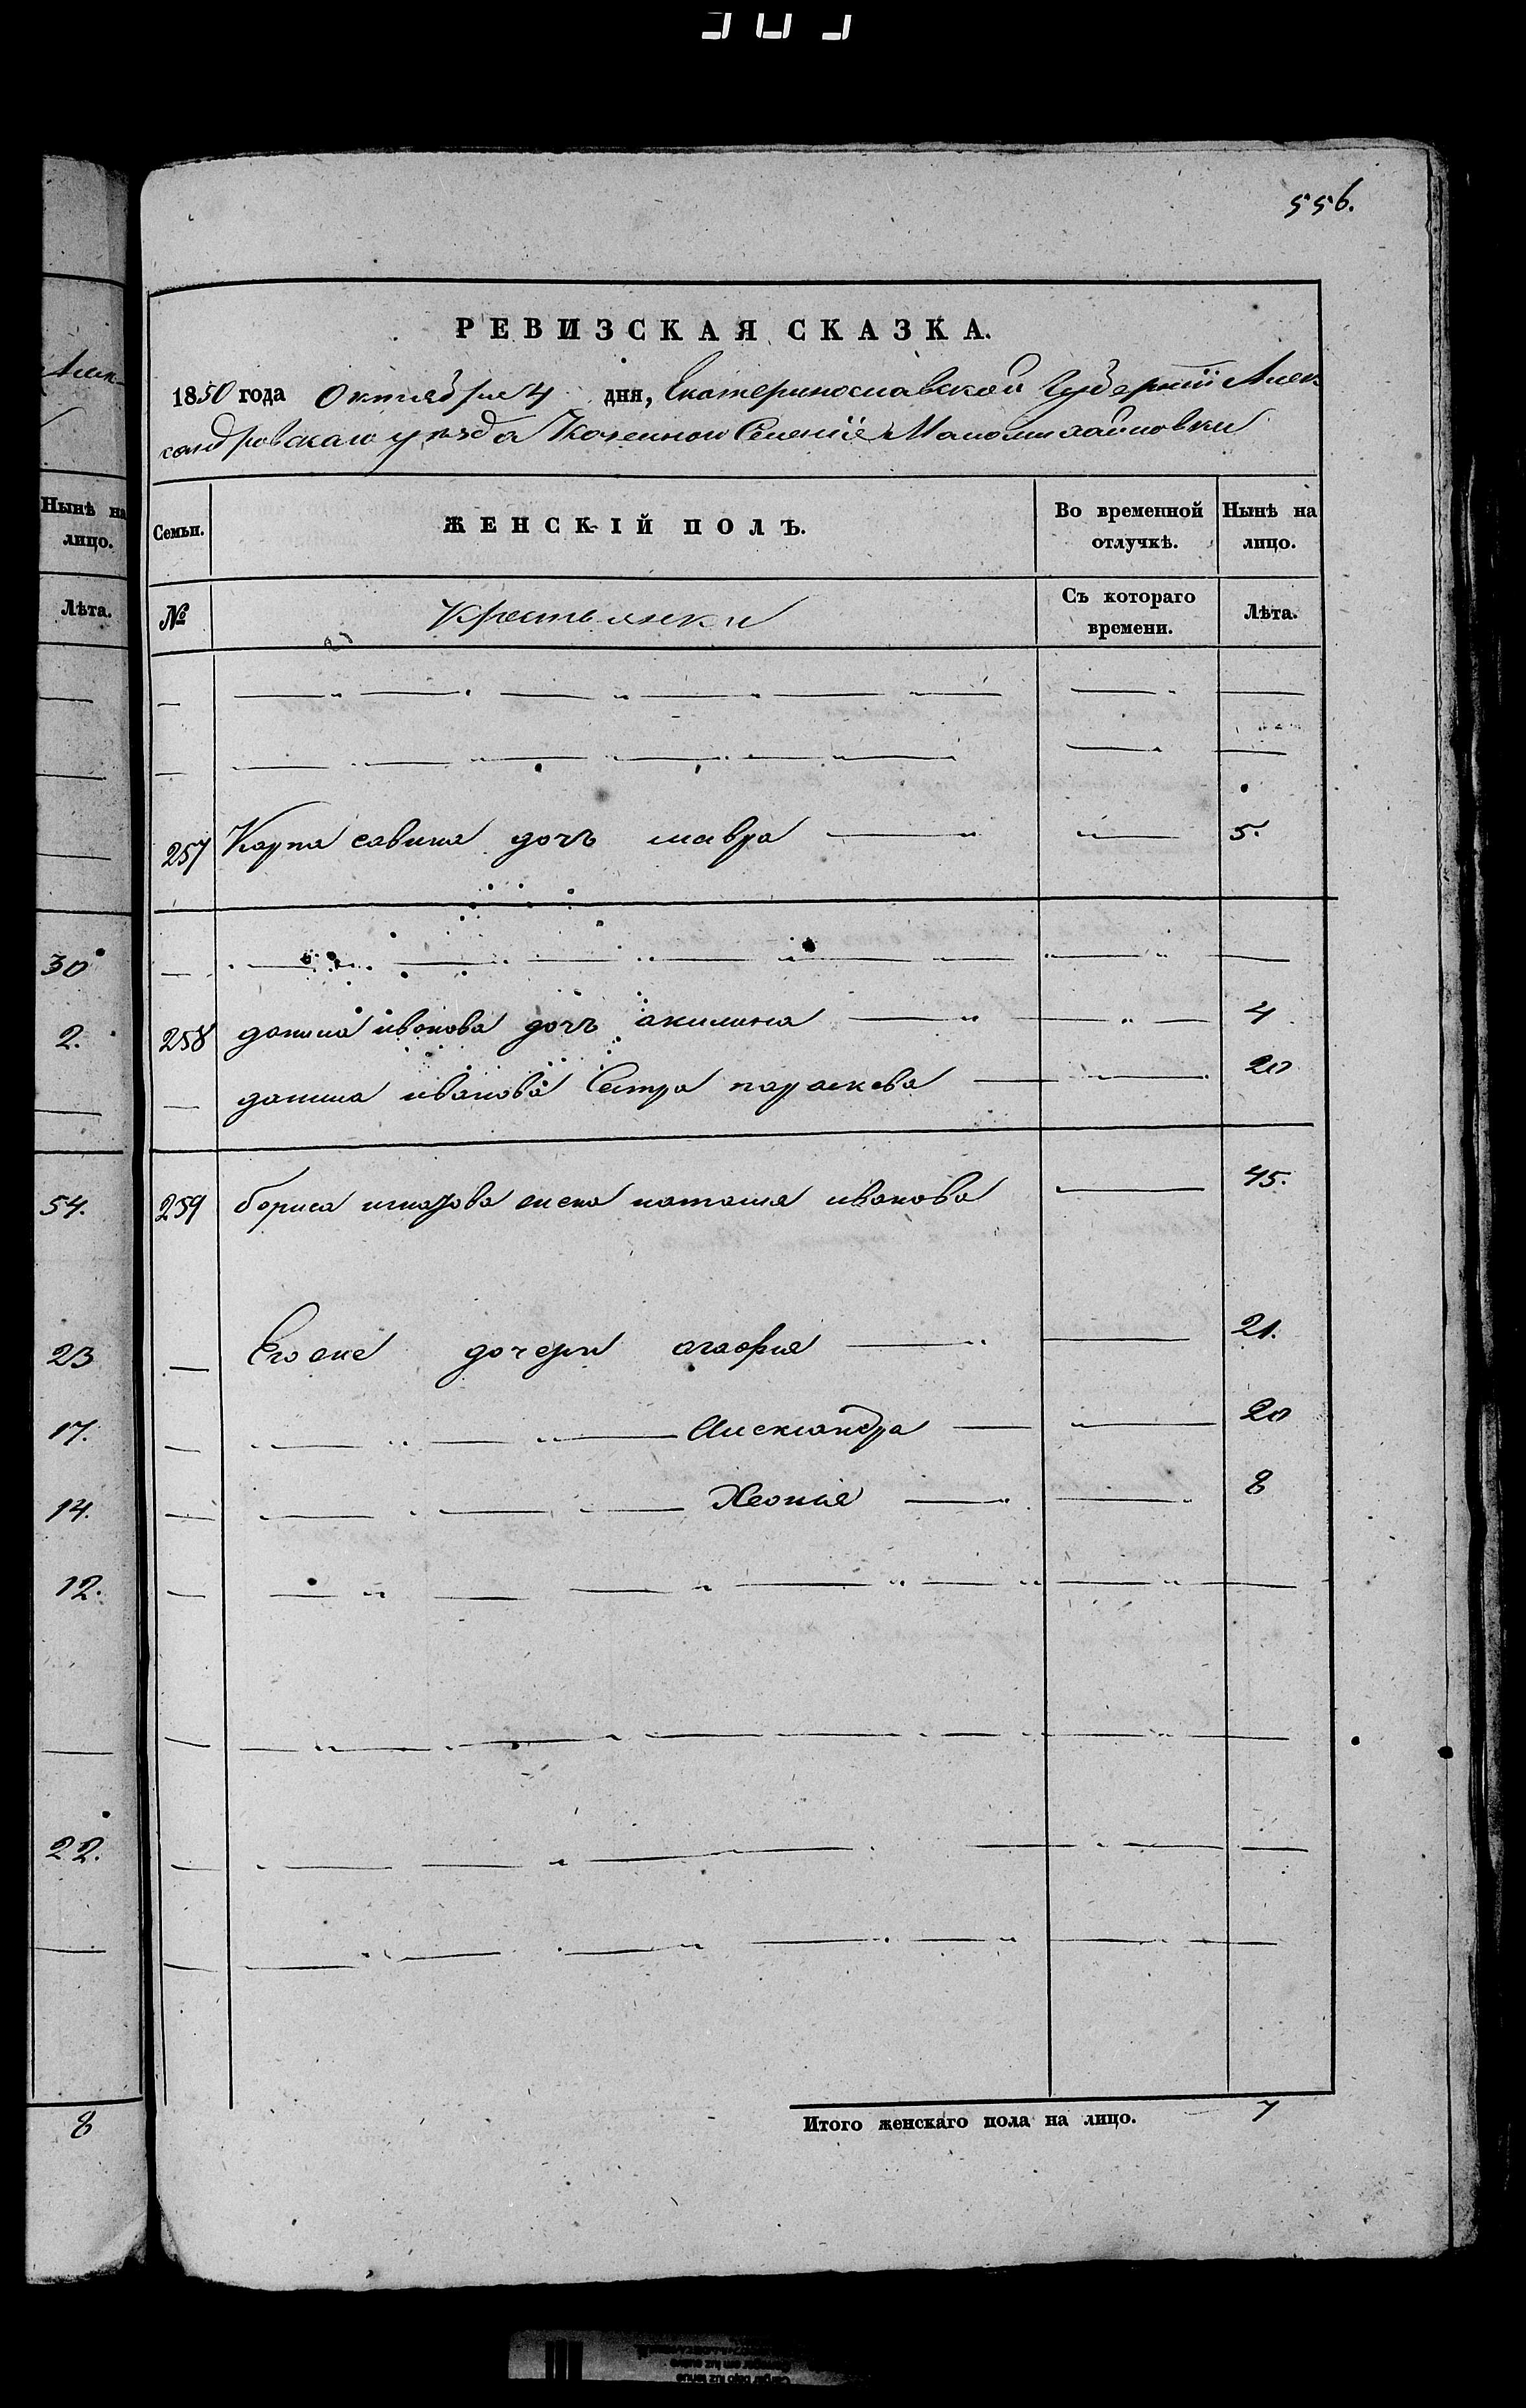 556.
РЕВИЗСКАЯ СКАЗКА.
1850 года Октября 4 дня, Екатеринославской Губернии Алек
сандровскаго уезда Казенном Селении Маломихайловки
Семьи.
ЖЕНСКІЙ ПОЛЪ.
Во временной отлучкѣ.
Нынѣ на лицо.
№
Крестьянки
Съ котораго времени.
Лѣта.
257 Карпа савина дочь мавра 5.
258 данила иванова дочь акилина 4
данила иванова Сестра параскева 20
259 бориса жена наталия иванова 45.
Его же дочери агафия 21.
Александра 20
Хеония 8
Итого женскаго пола на лицо. 7
Алек-
Нынѣ на
лицо.
Лѣта.
30
2.
54.
23
17.
14.
12.
22.
8